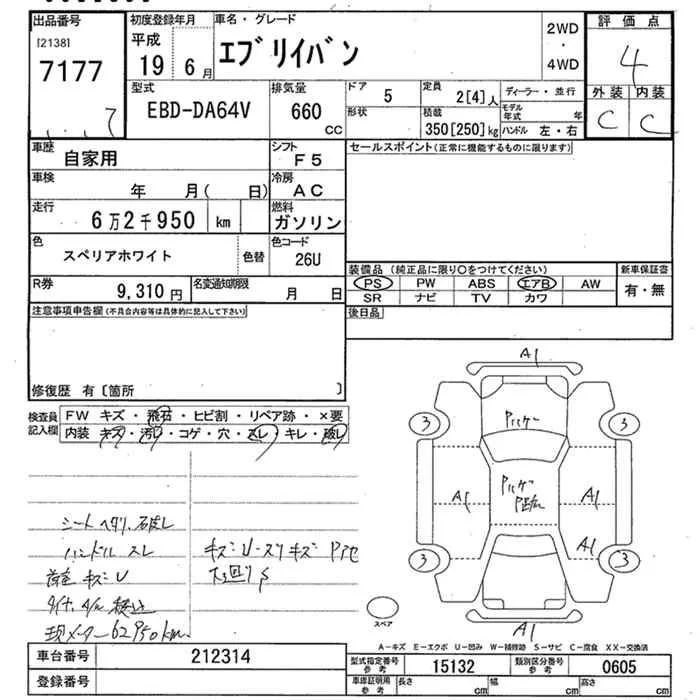 出品番号 初度登録年月 車名・グレード 2WD ・ 4WD 評価点
[2138] 7177 平成 19 6月 エブリイバン 4
型式 EBD-DA64V 排気量 660 CC ドア 5 定員 2[4]人 ディーラー・並行 外装 内装
形状 積載 350[250]kg モデル年式 年 ハンドル 左・右 C C
車歴 自家用 シフト F5 セールスポイント(正常に機能するものに限ります)
車検 年 月( 日) 冷房 AC
走行 6万2千950 km 燃料 ガソリン
色 スペリアホワイト 色替 色コード 26U
装備品 (純正品に限り○をつけてください) 新車保証書
R券 9,310円 名変通知期限 月 日 PS PW ABS エアB AW 有・無
SR ナビ TV カワ
注意事項申告欄(不具合内容等は具体的に記入して下さい) 後日品
修復歴 有〔箇所 〕
検査員記入欄 FW キズ・飛石・ヒビ割・リペア跡・×要
内装 キズ・汚レ・コゲ・穴・スレ・キレ・破レ
A1
3 3
A1 A1
A1
3 3
A1
スペア
シートヘタリ、破レ
ハンドル スレ
荷室 キズ:U
現メーター62950km.
キズ:U
A-キズ E-エクボ U-凹み W-補修跡 S-サビ C-腐食 XX-交換済
車台番号 212314 型式指定番号 参考 15132 類別区分番号 参考 0605
登録番号 車庫証明用 参考 長さ cm 幅 cm 高さ cm